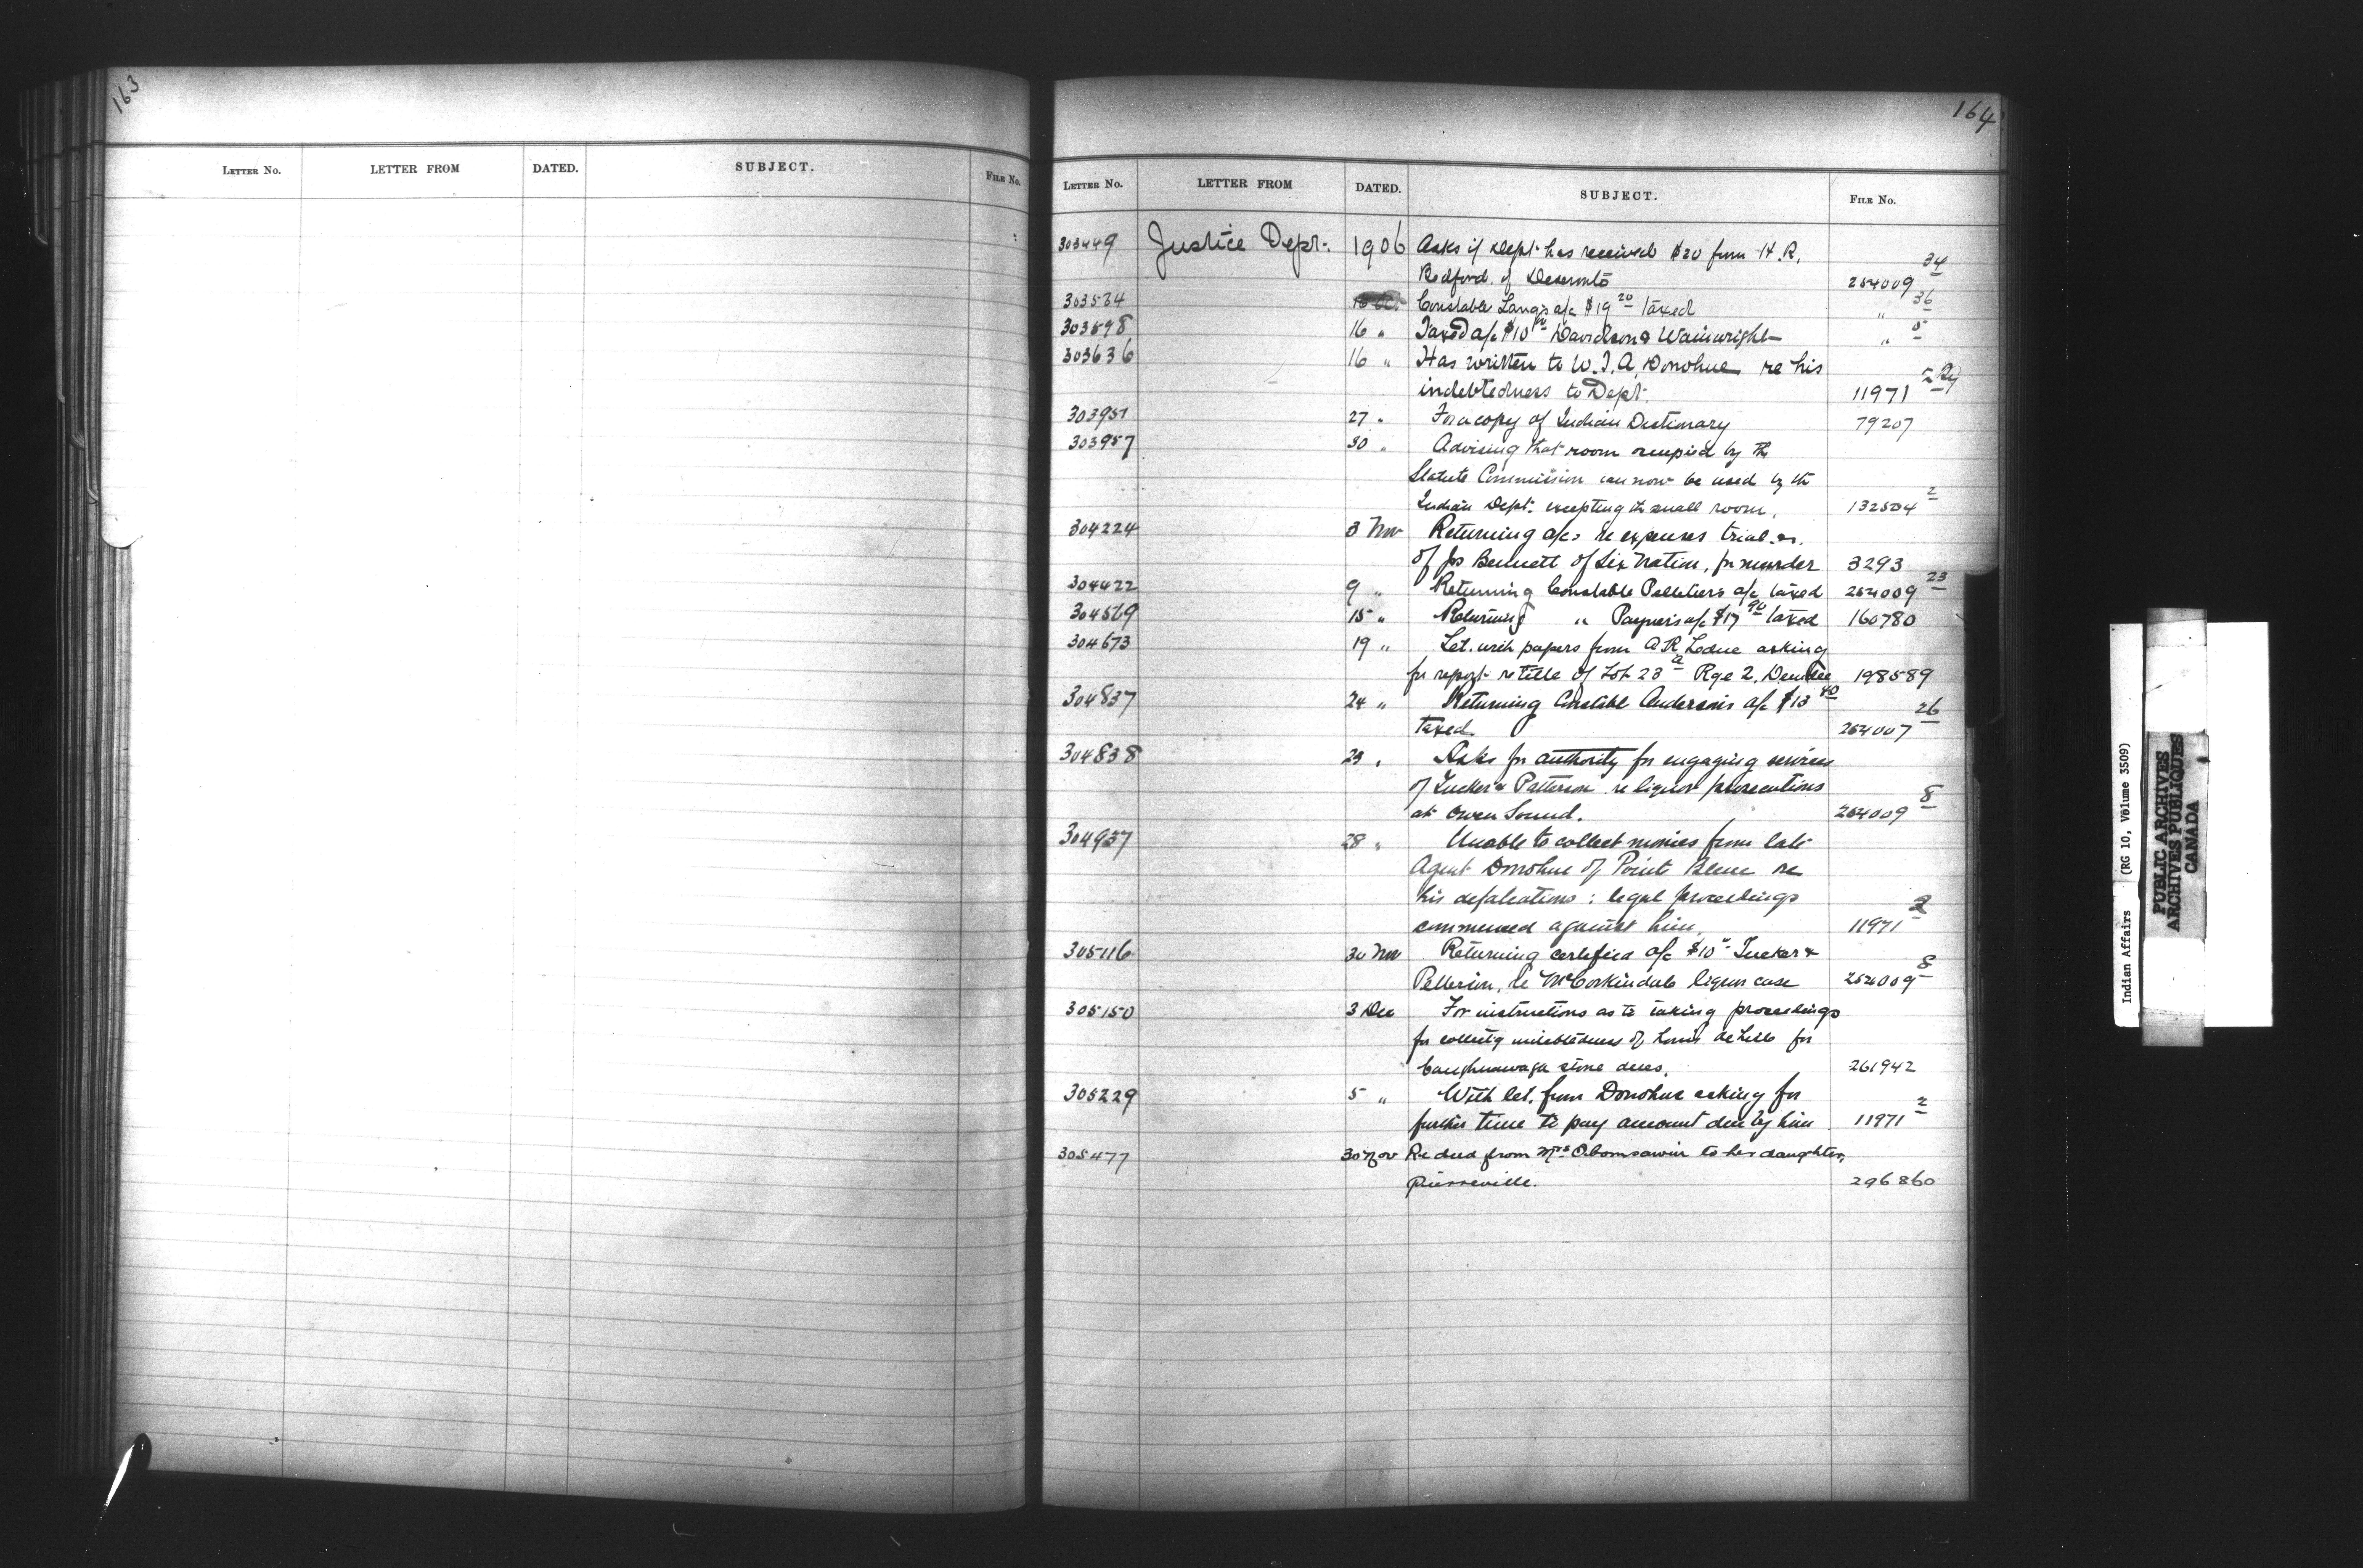 163
LETTER NO. LETTER FROM DATED. SUBJECT. FILE No.
164
LETTER NO. LETTER FROM DATED. SUBJECT. FILE No.
303449 Justice Dept. 1906 Asks if Dept. has received $20 from H. R.
Bedford of Deseronto 254009 34
303534 Constable Lang's a/c $19 20 taxed " 36
303598 16 " Taxed a/c $10 Davidson & Wainwright " 5
303636 16 " Has written to W. T. A. Donohue re his
indebtedness to Dept. 11971
303951 27 " For a copy of Indian Dictionary 79207
303957 30 " Advising that room occupied by the
Statute Commission can now be used by the
Indian Dept. excepting the small room. 132504 2
304224 3 Nov Returning a/cs re expenses trial
of Jos Bennett of Six Nation, for murder 3293
304422 9 " Returning Constable Pelletiers a/c taxed 254009 23
304569 15 " Returning " Payner's a/c $17 90 taxed 160780
304673 19 " Let. with papers from A R Leduc asking
for report re title of Lot 23 a Rge 2. Dundee 198589
304837 24 " Returning Constable Anderson's a/c $13 40
taxed 254007 26
304838 23 " Asks for authority for engaging services
of Tucker & Patterson re liquor prosecutions
at Owen Sound. 254009 8
304937 28 " Unable to collect monies from late
Agent Donohue of Pointe Bleue re
his defalcations : legal proceedings
commenced against him. 11971 2
305116 30 Nov Returning certified a/c $10 Tucker &
Patterson, re McCorkindale liquor case 254009 8
305150 3 Dec For instructions as to taking proceedings
for collectg indebtedness of Louis for
Caughnawaga stone dues. 261942
305229 5 " With let. from Donohue asking for
further time to pay amount due by him 11971 2
305477 30 Nov Re deed from Mrs Obomsawin to her daughter,
Pierreville. 296860
Indian Affairs (RG 10, Volume 3509)
PUBLIC ARCHIVES
ARCHIVES PUBLIQUES
CANADA